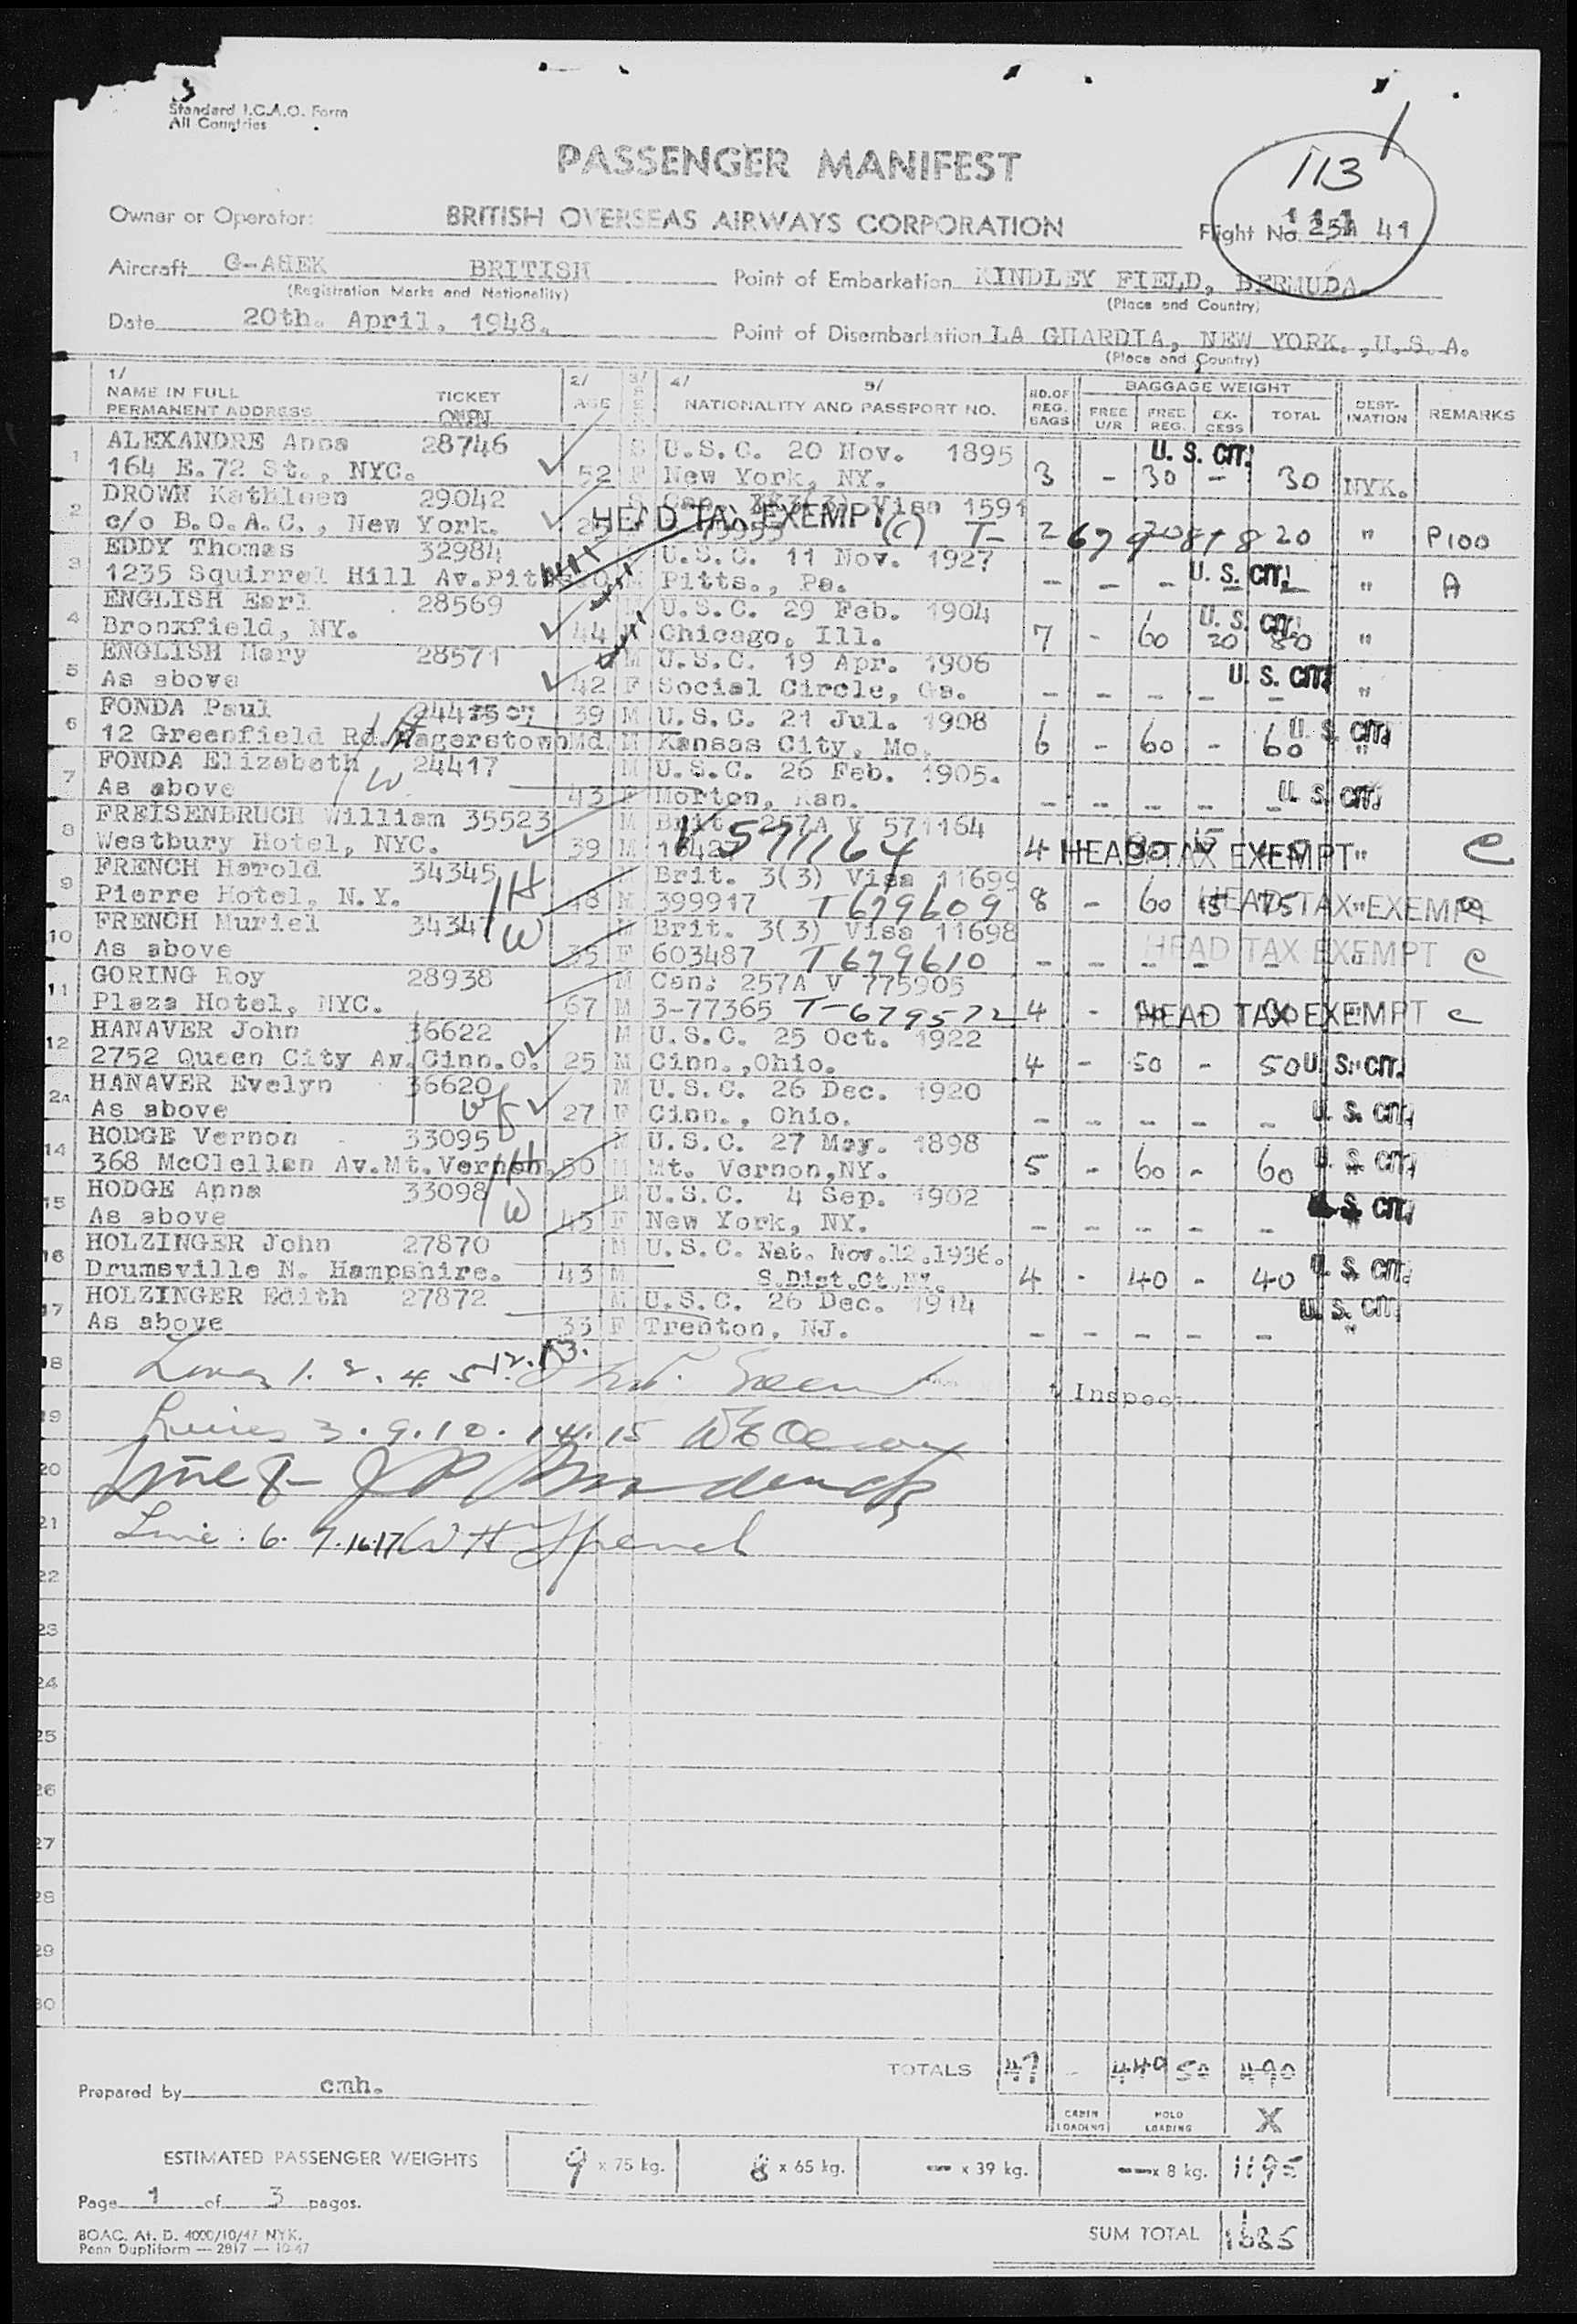 Standard I.C.A.O. Form
All Countries
PASSENGER MANIFEST
113
Owner or Operator: BRITISH OVERSEAS AIRWAYS CORPORATION Flight No. 41
Aircraft G-AHEK BRITISH Point of Embarkation KINDLEY FIELD, BERMUDA.
(Registration Marks and Nationality) (Place and Country)
Date 20th. April, 1948. Point of Disembarkation LA GUARDIA, NEW YORK., U.S.A.
(Place and Country)
1/ 2/ 3/ 4/ 5/ NO. OF BAGGAGE WEIGHT
NAME IN FULL TICKET AGE SEX NATIONALITY AND PASSPORT NO. REG. FREE FREE EX- TOTAL DEST- REMARKS
PERMANENT ADDRESS BAGS U/R REG. CESS INATION
1 ALEXANDRE Anna 28746 S U.S.C. 20 Nov. 1895 U. S. CIT.
164 E.72 St., NYC. 52 F New York, NY. 3 - 30 - 30 NYK.
2 DROWN Kathleen 29042 S Can. Visa 1591
c/o B.O.A.C., New York. HEAD TAX EXEMPT (C) T- 2 20 " P100
3 EDDY Thomas 32984 U.S.C. 11 Nov. 1927 U. S. CIT.
1235 Squirrel Hill Av. M Pitts., Pa. - - - - - " A
4 ENGLISH Earl 28569 U.S.C. 29 Feb. 1904 U. S. CIT.
Bronxfield, NY. 44 M Chicago, Ill. 7 - 60 20 80 "
5 ENGLISH Mary 28571 M U.S.C. 19 Apr. 1906 U. S. CIT.
As above 42 F Social Circle, Ga. - - - - - "
6 FONDA Paul 39 M U.S.C. 21 Jul. 1908 U. S. CIT.
12 Greenfield Rd. Hagerstown Md. M Kansas City, Mo. 6 - 60 - 60 "
7 FONDA Elizabeth 24417 M U.S.C. 26 Feb. 1905.
As above W 43 F Morton, Kan. - - - - - U. S. CIT.
8 FREISENBRUCH William 35523 M Brit. 257A V 571164
Westbury Hotel, NYC. 39 M V 571164 4 HEAD TAX EXEMPT " C
9 FRENCH Harold 34345 H Brit. 3(3) Visa 11699
Pierre Hotel, N.Y. 48 M 399917 T679609 8 - 60 15 75 HEAD TAX EXEMPT
10 FRENCH Muriel 34347 W M Brit. 3(3) Visa 11698
As above 35 F 603487 T679610 - - - - - HEAD TAX EXEMPT C
11 GORING Roy 28938 M Can: 257A V 775905
Plaza Hotel, NYC. 67 M 3-77365 T-679572 4 - HEAD TAX EXEMPT C
12 HANAVER John 36622 M U.S.C. 25 Oct. 1922
2752 Queen City Av. Cinn.O. 25 M Cinn.,Ohio. 4 - 50 - 50 U. S. CIT.
2A HANAVER Evelyn 36620 M U.S.C. 26 Dec. 1920
As above wf 27 F Cinn., Ohio. - - - - - U. S. CIT.
14 HODGE Vernon 33095 M U.S.C. 27 May. 1898
368 McClellan Av.Mt.Vernon. H 50 M Mt. Vernon,NY. 5 - 60 - 60 U. S. CIT.
15 HODGE Anna 33098 M U.S.C. 4 Sep. 1902
As above W 45 F New York, NY. - - - - - U. S. CIT.
16 HOLZINGER John 27870 M U.S.C. Nat. Nov.12.1936.
Drumsville N. Hampshire. 43 M S.Dist.Ct.NY. 4 - 40 - 40 U. S. CIT.
17 HOLZINGER Edith 27872 M U.S.C. 26 Dec. 1914 U. S. CIT.
As above 33 F Trenton, NJ. - - - - - "
18 Lines 1. 2. 4. 5. 12. 13.
t Inspect
19 Lines 3. 9. 10. 14. 15
20 Line
21 Line. 6. 7. 16. 17 W H French
22
23
24
25
26
27
28
29
30
TOTALS 47 - 440 50 490
Prepared by cmh.
CABIN LOADING HOLD LOADING X
ESTIMATED PASSENGER WEIGHTS 9 x 75 kg. 8 x 65 kg. — x 39 kg. — x 8 kg. 1195
Page 1 of 3 pages.
BOAC. At. D. 4000/10/47 NYK. SUM TOTAL 1685
Penn Dupliform — 2817 — 10-47